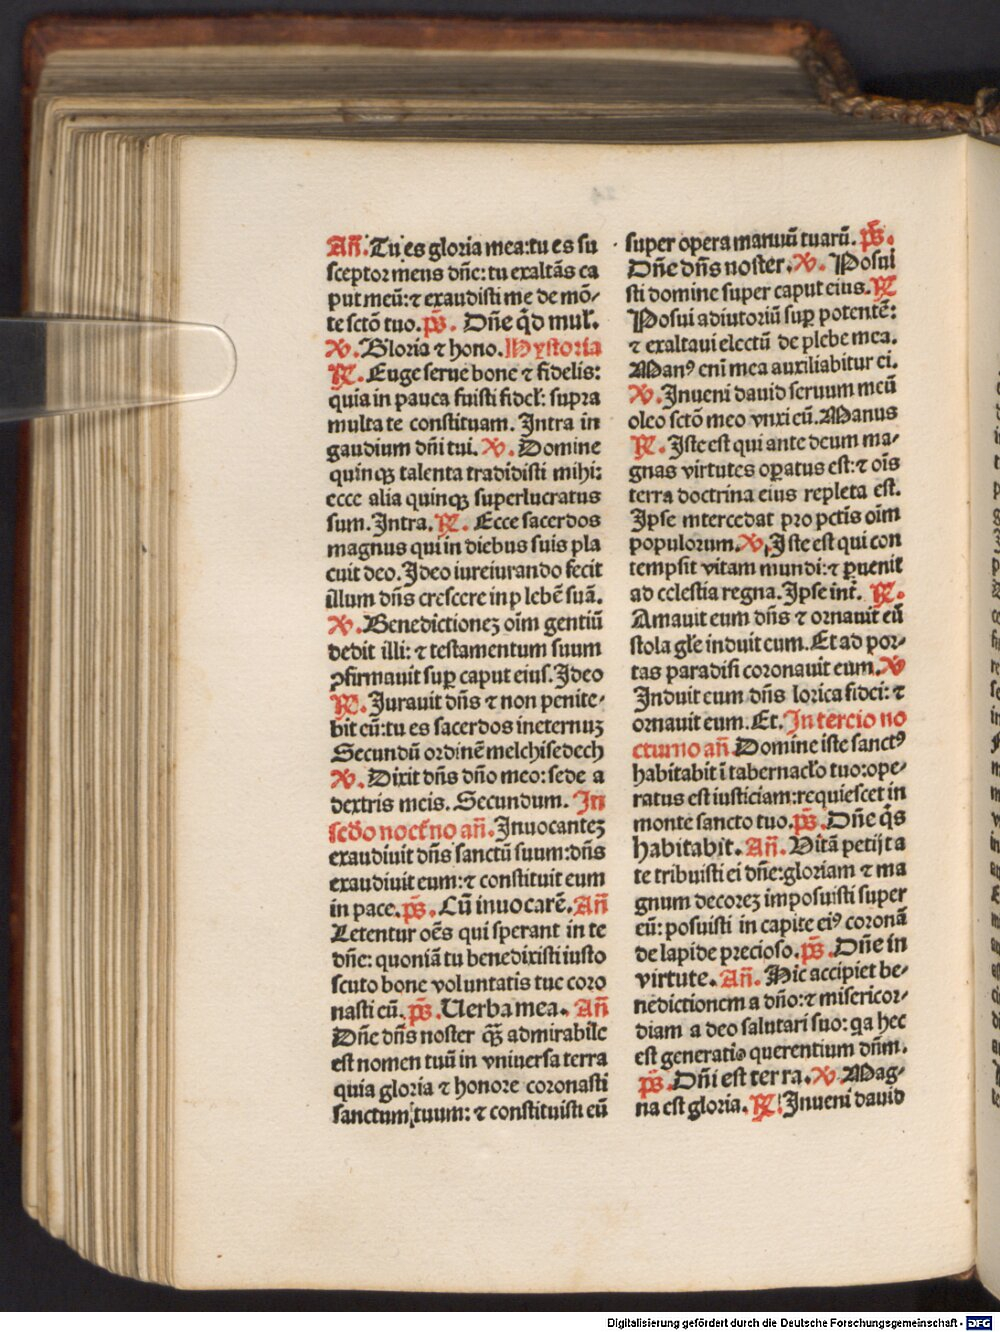 Añ. Tu es gloria mea: tu es su
sceptor meus dñe: tu exaltãs ca
put meũ: ⁊ exaudisti me de mõ⸗
te sctõ tuo. p̃s. Dñe q̃d mul̃.
℣. Gloria ⁊ hono. Hystoria
℟. Euge serue bone ⁊ fidelis:
quia in pauca fuisti fidel̃: supra
multa te constituam. Intra in
gaudium dñi tui. ℣. Domine
quinqꝫ talenta tradidisti mihi:
ecce alia quinqꝫ superlucratus
sum. Intra. ℟. Ecce sacerdos
magnus qui in diebus suis pla
cuit deo. Ideo iureiurando fecit
illum dñs crescere in plebẽ suã.
℣. Benedictioneꝫ oĩm gentiũ
dedit illi: ⁊ testamentum suum
ꝯfirmauit sup̃ caput eius. Ideo
℟. Jurauit dñs ⁊ non penite⸗
bit eũ: tu es sacerdos ineternuꝫ
Secundũ ordinẽ melchisedech
℣. Dixit dñs dño meo: sede a
dextris meis. Secundum. In
scd̃o noct̃no añ. Inuocanteꝫ
exaudiuit dñs sanctũ suum: dñs
exaudiuit eum: ⁊ constituit eum
in pace. p̃s. Cũ inuocarẽ. Añ
Letentur oẽs qui sperant in te
dñe: quoniã tu benedixisti iusto
scuto bone voluntatis tue coro
nasti eũ. p̃s. Uerba mea. Añ
Dñe dñs noster q̃ꝫ admirabile
est nomen tuũ in vniuersa terra
quia gloria ⁊ honore coronasti
sanctum tuum: ⁊ constituisti eũ
super opera manuũ tuarũ. p̃s.
Dñe dñs noster. ℣. Posui
sti domine super caput eius. ℟
Posui adiutoriũ sup̃ potentẽ:
⁊ exaltaui electũ de plebe mea.
Manꝰ eni mea auxiliabitur ei.
℣. Inueni dauid seruum meũ
oleo sctõ meo vnxi eũ. Manus
℟. Iste est qui ante deum ma⸗
gnas virtutes oꝑatus est: ⁊ oĩs
terra doctrina eius repleta est.
Ipse intercedat pro pctĩs oĩm
populorum. ℣. Iste est qui con
tempsit vitam mundi: ⁊ ꝑuenit
ad celestia regna. Ipse int̃. ℟.
Amauit eum dñs ⁊ ornauit eũ
stola gl̃e induit eum. Et ad por⸗
tas paradisi coronauit eum. ℣
Induit eum dñs lorica fidei: ⁊
ornauit eum. Et. In tercio no
cturno añ. Domine iste sanctꝰ
habitabit ĩ tabernacl̃o tuo: ope⸗
ratus est iusticiam: requiescet in
monte sancto tuo. p̃s. Dñe q̃s
habitabit. Añ. Vitã petijt a
te tribuisti ei dñe: gloriam ⁊ ma
gnum decoreꝫ imposuisti super
eũ: posuisti in capite eiꝰ coronã
de lapide precioso. p̃s. Dñe in
virtute. Añ. Hic accipiet be⸗
nedictionem a dño: ⁊ misericor⸗
diam a deo salutari suo: q̃a hec
est generatio querentium dñm.
p̃s. Dñi est terra. ℣. Mag⸗
na est gloria. ℟. Inueni dauid
Digitalisierung gefördert durch die Deutsche Forschungsgemeinschaft - DFG